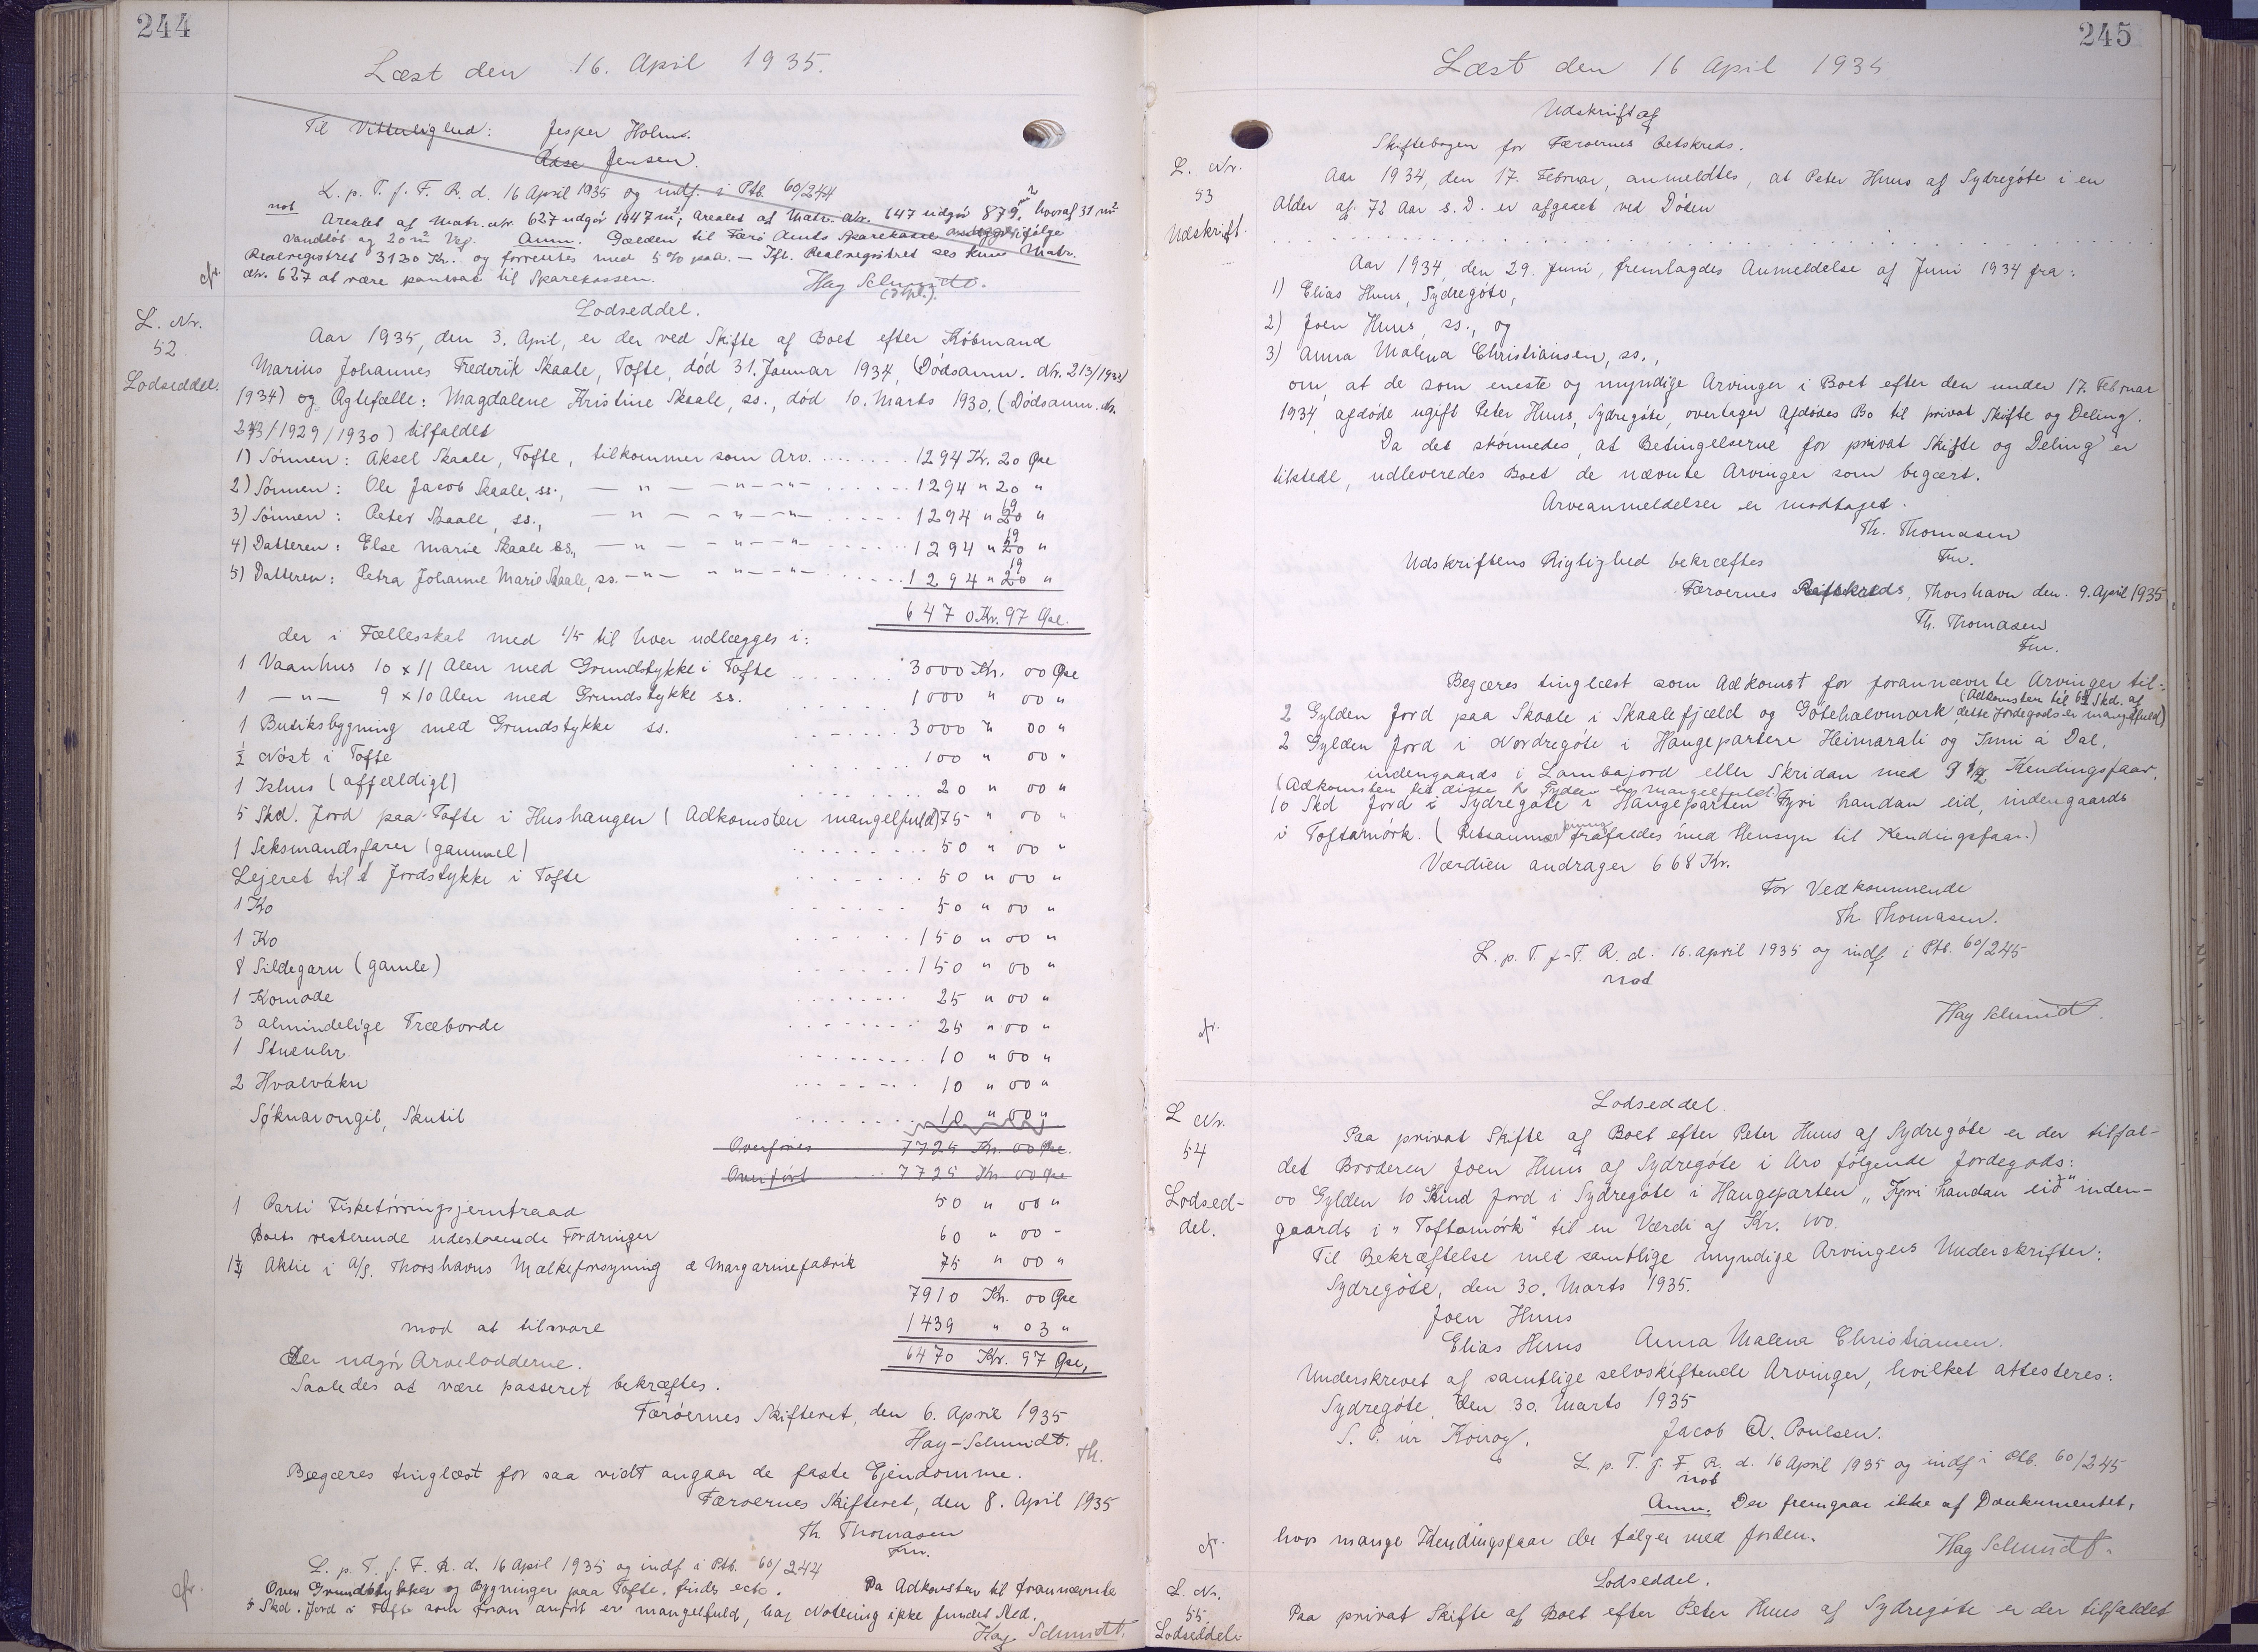 244
Læst den 16. April 1935.
Til Vitterlighed: Jesper Holm.
Aase Jensen.
L. p. T. f. F. R. d. 16 April 1935 og indf. i Ptb. 60/244
not
Arealet af Matr. Nr. 627 udgör 1947 m², Arealet af Matr. Nr. 647 udgör 879 m², hvoraf 31 m²
Vandlöb og 20 m² Vej. Anm. Gælden til Færö Amts Sparekasse ifölge
Realregistret 3130 Kr. og forrentes med 5 % paa. — Ifl. Realregistret ses kun Matr.
Nr. 627 at være pantsat til Sparekassen. Hay Schmidt.
cfr.
L. Nr.
52.
Lodseddel.
Lodseddel.
Aar 1935, den 3. April, er der ved Skifte af Boet efter Köbmand
Marius Johannes Frederik Skaale, Tofte, död 31. Januar 1934, (Dödsanm. Nr. 213/1933/
1934) og Ægtefælle: Magdalene Kristine Skaale, ss., död 10. Marts 1930, (Dödsanm. Nr.
243/1929/1930) tilfaldet
1) Sönnen: Aksel Skaale, Tofte, tilkommer som Arv. ....... 1294 Kr. 20 Øre
2) Sönnen: Ole Jacob Skaale, ss., — " — — " — " — ...... 1294 " 20 "
3) Sönnen: Peter Skaale, ss., — " — — " — " — ..... 1294 " 20 19 "
4) Datteren: Else Marie Skaale ss., — " — — " — " — ..... 1294 " 20 19 "
5) Datteren: Petra Johanne Marie Skaale, ss. — " — — " — " — ..... 1294 " 20 19 "
6470 Kr. 97 Øre.
der i Fællesskab med 1/5 til hver udlægges i:
1 Vaanhus 10 x 11 Alen med Grundstykke i Tofte ....... 3000 Kr. 00 Øre
1 — " — 9 x 10 Alen med Grundstykke ss. ...... 1000 " 00 "
1 Butiksbygning med Grundstykke ss. ...... 3000 " 00 "
½ Nöst i Tofte ....... 100 " 00 "
1 Ishus (affældigt) ....... 20 " 00 "
5 Skd. Jord paa Tofte i Hushaugen (Adkomsten mangelfuld) 75 " 00 "
1 Seksmandsfarer (gammel) ....... 50 " 00 "
Lejeret til 1 Jordstykke i Tofte ....... 50 " 00 "
1 Ko ....... 50 " 00 "
1 Ko ...... 150 " 00 "
8 Sildegarn (gamle) ...... 150 " 00 "
1 Komode ........ 25 " 00 "
3 almindelige Træborde ........ 25 " 00 "
1 Stueuhr. ........ 10 " 00 "
2 Hvalvákn ........ 10 " 00 "
Söknarongil, Skutil ....... 10 " 00 "
Overföres 7725 Kr. 00 Øre.
Overfört ... 7725 Kr. 00 Øre
1 Parti Fisketörringsjerntraad 50 " 00 "
Boets resterende udestaaende Fordringer 60 " 00 -
1¼ Aktie i A/S. Thorshavns Mælkeforsyning & Margarinefabrik 75 " 00 "
7910 Kr. 00 Øre
mod at tilsvare 1439 " 03 "
der udgör Arvelodderne. 6470 Kr. 97 Øre,
Saaledes at være passeret bekræftes.
Færöernes Skifteret, den 6. April 1935
Hay-Schmidt.
Th.
Begæres tinglæst for saa vidt angaar de faste Ejendomme.
Færoernes Skifteret, den 8. April 1935
Th. Thomasen
Fm.
L. p. T. f. F. R. d. 16 April 1935 og indf i Ptb. 60/244
cfr. Grundstykker og Bygninger paa Tofte. Da Adkomsten til forannævnte
5 Skd. Jord i Tofte som foran anfört er mangelfuld, har Notering ikke fundet Sted.
Hay Schmidt.
245
Læst den 16 April 1935
Udskrift af
Skiftebogen for Færoernes Retskreds.
L. Nr.
53
Udskrift.
Aar 1934, den 17. Februar, anmeldtes, at Peter Huus af Sydregöte i en
Alder af 72 Aar s. D. er afgaaet ved Döden
Aar 1934, den 29. Juni, fremlagdes Anmeldelse af Juni 1934 fra:
1) Elias Huus, Sydregöte,
2) Joen Huus, ss., og
3) Anna Malena Christiansen, ss.,
om, at de som eneste og myndige Arvinger i Boet efter den under 17. Februar
1934 afdöde ugift Peter Huus, Sydregöte, overtager Afdödes Bo til privat Skifte og Deling.
Da det skönnedes, at Betingelserne for privat Skifte og Deling er
tilstede, udleveredes Boet de nævnte Arvinger som begært.
Arveanmeldelser er modtaget.
Th. Thomasen
Fm.
Udskriftens Rigtighed bekræftes
Færoernes Retskreds, Thorshavn den. 9. April 1935
Th. Thomasen
Fm.
Begæres tinglæst som Adkomst for forannævnte Arvinger til:
2 Gylden Jord paa Skaale i Skaalefjæld og Götehalvmark (Adkomsten til Skd. af dette Jordegods er mangelfuld)
2 Gylden Jord i Nordregöte i Haugeparten Heimarali og Inni á Dal,
indengaards i Lambajord eller Skridan med 9 ½ Kendingsfaar,
(Adkomsten til disse 2 Gylden er mangelfuld)
10 Skd Jord i Sydregöte i Haugeparten Fyri handan eid, indengaards
i Toftamörk. (Retsanmærkning frafaldes med Hensyn til Kendingsfaar.)
Værdien andrager 668 Kr.
For Vedkommende
Th. Thomasen.
L. p. T. f. F. R. d. 16. April 1935 og indf i Ptb. 60/245
not
cfr.
Hay Schmidt.
L Nr.
54
Lodsed-
del.
Lodseddel.
Paa privat Skifte af Boet efter Peter Huus af Sydregöte er der tilfal-
det Broderen Joen Huus af Sydregöte i Arv fölgende Jordegods:
00 Gylden 10 Skind Jord i Sydregöte i Haugeparten „Fyri handan eid" inden-
gaards i „Toftamörk" til en Værdi af Kr. 100.
Til Bekræftelse med samtlige myndige Arvingers Underskrifter:
Sydregöte, den 30. Marts 1935.
Joen Huus
Elias Huus Anna Malena Christiansen.
Underskrevet af samtlige selvskiftende Arvinger, hvilket attesteres:
Sydregöte, den 30. Marts 1935
S. P. úr Jacob A. Poulsen.
L. p. T. f. F. R. d. 16 April 1935 og indf i Ptb. 60/245
not
Anm. Det fremgaar ikke af Dokumentet,
cfr. hvor mange Kendingsfaar der fölger med Jorden. Hay Schmidt.
L. Nr.
55.
Lodseddel.
Lodseddel.
Paa privat Skifte af Boet efter Peter Huus af Sydregöte er der tilfaldet